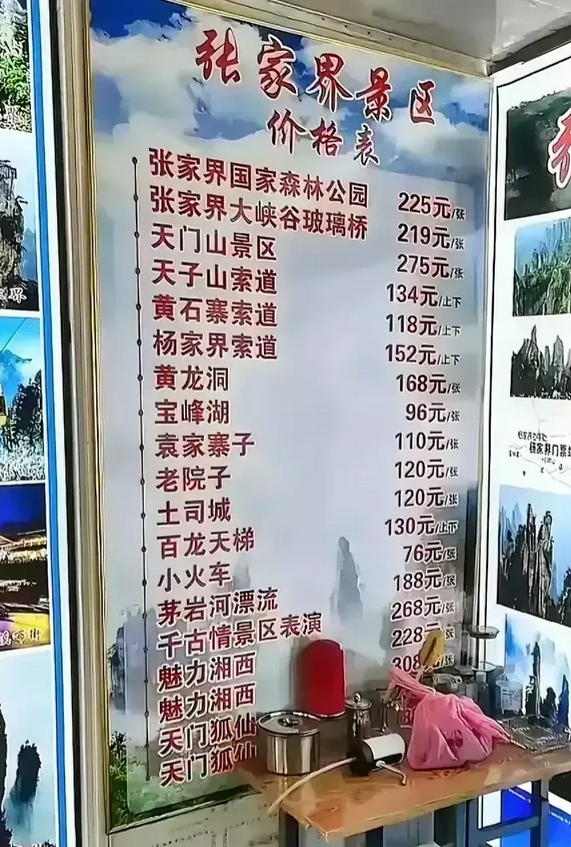 张家界景区
价格表
张家界国家森林公园 225元/张
张家界大峡谷玻璃桥 219元/张
天门山景区 275元/张
天子山索道 134元/上下
黄石寨索道 118元/上下
杨家界索道 152元/上下
黄龙洞 168元/张
宝峰湖 96元/张
袁家寨子 110元/张
老院子 120元/张
土司城 120元/张
百龙天梯 130元/上下
小火车 76元/张
茅岩河漂流 188元/张
千古情景区表演 268元/张
魅力湘西 228元
魅力湘西 308
天门狐仙
天门狐仙
杨家界门票站